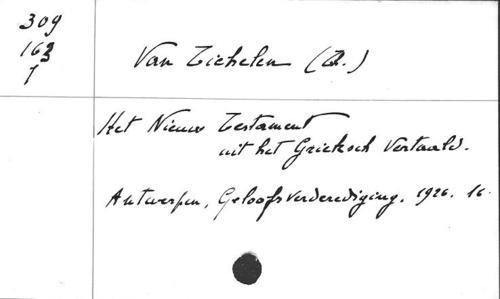 309
163
1
Van Tichelen (Th.)
Het Nieuw Testament
uit het Grieksch Vertaald.
Antwerpen, Geloofsverdediging, 1926. 16